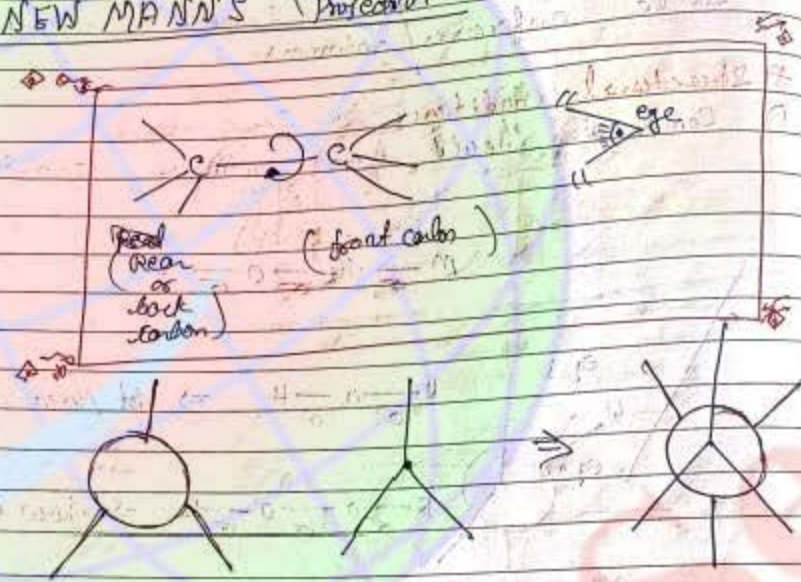 NEW MANN'S (Projection
C C eye
(Rear (front carbon)
or
back
carbon)